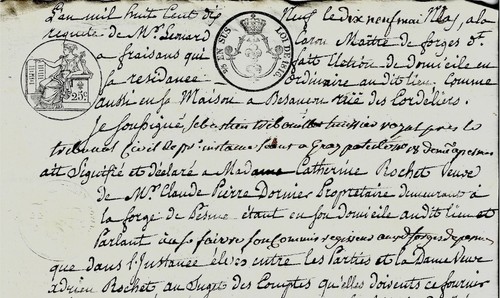 L'an mil huit Cent dix Neuf le dix neuf mai
requête de Mr. Léonard Caron Maître de forges dt.
a fraisans qui fait élection de domicile en
sa residence ordinaire audit lieu. Comme
aussi en sa Maison a Besancon ruë des Cordeliers.
EN SUS
LOI DE 1816
25c.
Je soussigné Sebastien huissier près le
tribunal Civil de Pre. instance séant a Gray
ait Signifié et déclaré a Madame Catherine Rochet Veuve
de Mr. Claude Pierre Dornier Propriétaire demeurant à
la forge de Pesme étant en son domicile audit lieu et
Parlant
que dans l'Instance élevée entre les Parties et la Dame Veuve
adrien Rochet, au Sujet des Comptes qu'elles doivent se fournir